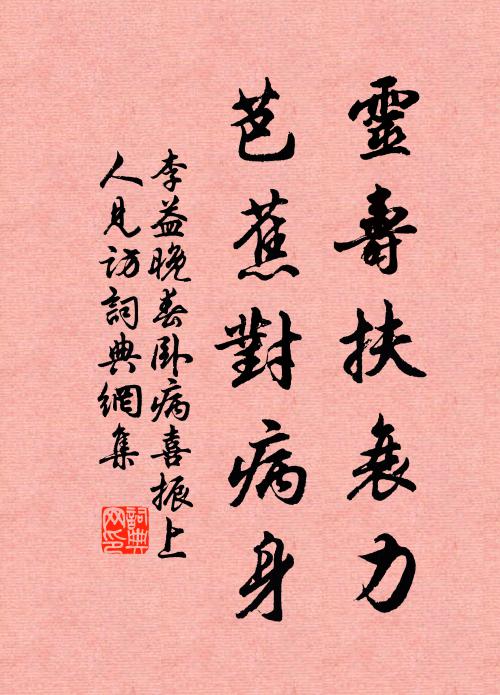 靈壽扶衰力
芭蕉對病身
李益晚春卧病喜振上
人見訪詞典網集
詞典
网印